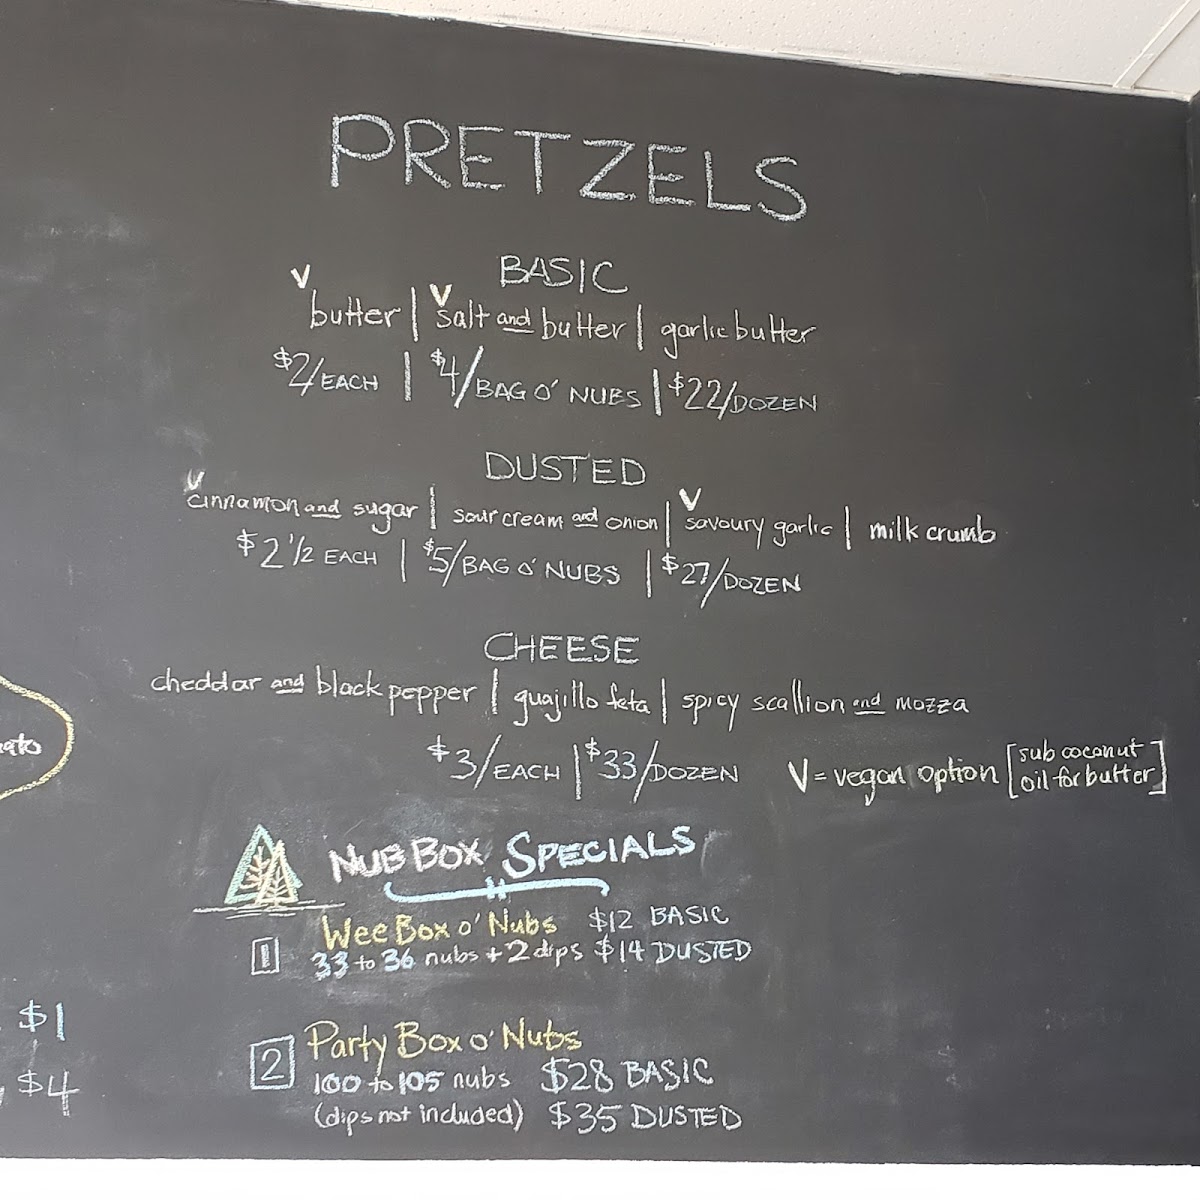 PRETZELS
BASIC
V butter | V salt and butter | garlic butter
$2/EACH | $4/BAG O' NUBS | $22/DOZEN
DUSTED
V cinnamon and sugar | sour cream and onion | V savoury garlic | milk crumb
$2 1/2 EACH | $5/BAG O' NUBS | $27/DOZEN
CHEESE
cheddar and black pepper | guajillo feta | spicy scallion and mozza
$3/EACH | $33/DOZEN
V = vegan option [sub coconut
oil for butter]
NUB BOX SPECIALS
1 Wee Box o' Nubs $12 BASIC
33 to 36 nubs + 2 dips $14 DUSTED
2 Party Box o' Nubs
100 to 105 nubs $28 BASIC
(dips not included) $35 DUSTED
$1
$4